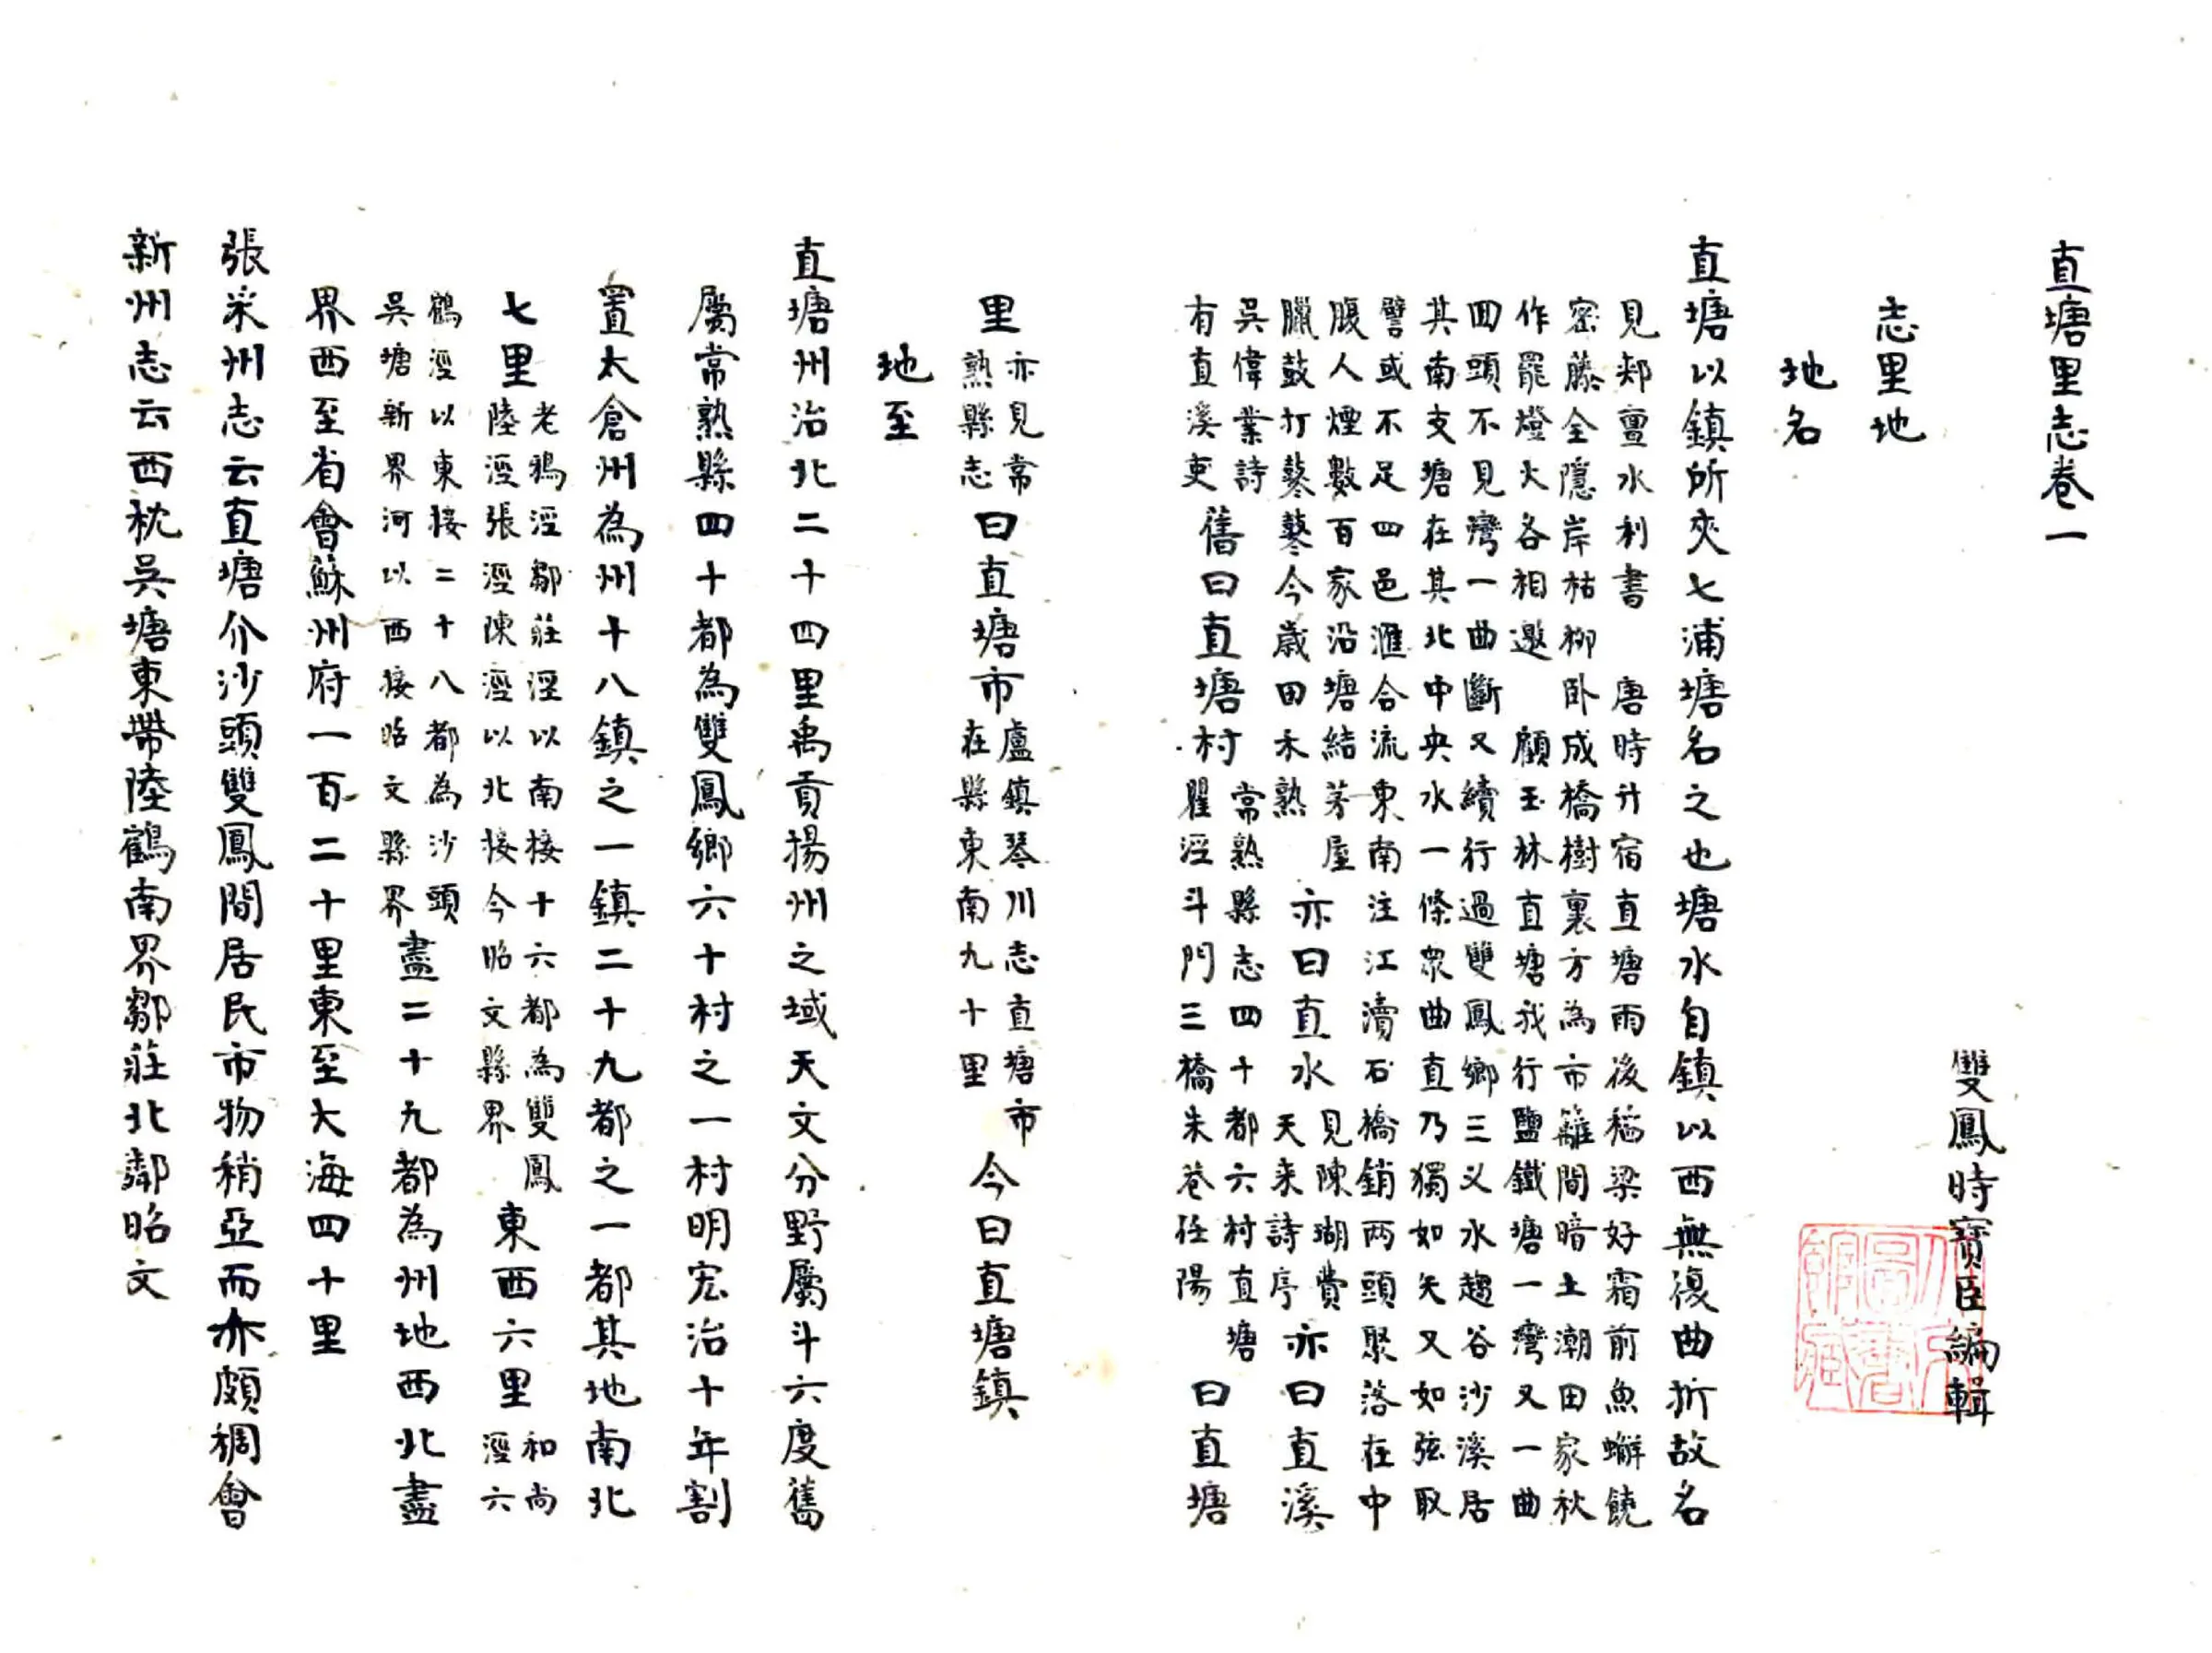 直塘里志卷一
雙鳳時寶臣編輯
志里地
地名
直塘以鎮所夾七浦塘名之也塘水自鎮以西無復曲折故名
見郟亶水利書　唐時升宿直塘雨後稻粱好霜前魚蠏饒
密藤全隱岸枯柳卧成橋樹裏方為市籬間暗土潮田家秋
作罷燈火各相邀　顧玉林直塘我行鹽鐵塘一灣又一曲
回頭不見灣一曲斷又續行過雙鳳鄉三义水趨谷沙溪居
其南支塘在其北中央水一條衆曲直乃獨如矢又如弦取
譬或不足四邑滙合流東南注江瀆石橋銷兩頭聚落在中
腹人煙數百家沿塘結茅屋　亦曰直水　見陳瑚費
臘鼓打鼕鼕今歲田禾熟　天来詩序　亦曰直溪
吳偉業詩
有直溪吏　舊曰直塘村　常熟縣志四十都六村直塘
瞿涇斗門三橋朱巷任陽　曰直塘
里　亦見常
熟縣志　曰直塘市　盧鎮琴川志直塘市
在縣東南九十里　今曰直塘鎮
地至
直塘州治北二十四里禹貢揚州之域天文分野屬斗六度舊
屬常熟縣四十都為雙鳳鄉六十村之一村明宏治十年割
置太倉州為州十八鎮之一鎮二十九都之一都其地南北
七里　老鴉涇鄒莊涇以南接十六都為雙鳳
陸涇張涇陳涇以北接今昭文縣界　東西六里　和尚
涇六
鶴涇以東接二十八都為沙頭
吳塘新界河以西接昭文縣界　盡二十九都為州地西北盡
界西至省會蘇州府一百二十里東至大海四十里
張采州志云直塘介沙頭雙鳳間居民市物稍亞而亦頗稠會
新州志云西枕吳塘東帶陸鶴南界鄒莊北鄰昭文